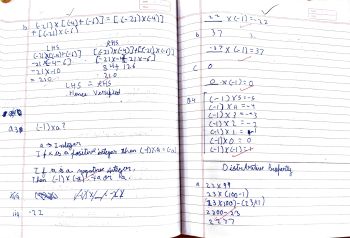 b (-21)×[(-4)+(-6)] = [(-21)×(-4)]
+ [(-21)×(-6)]
LHS RHS
(-21)×[(-4)+(-6)] [(-21)×(-4)]+[(-21)×(-6)]
-21×-4-6 [-21×-4][-21×-6]
= -21×-10 84+126
= 210 210
LHS = RHS
Hence Verified
(-1)×a?
a → Integer
If a is a positive integer then (-1)×a = (-a)
If a is a negative integer.
Then (-1)×(-a) = +a or a.
iii -22
-22 × (-1) = 22
b 37
37 × (-1) = 37
c 0
0 × (-1) = 0
(-1)×5 = -5
(-1)×4 = -4
(-1)×3 = -3
(-1)×2 = -2
(-1)×1 = -1
(-1)×0 = 0
(-1)×(-1) = 1
Distributive Property
a 23×99
23×(100-1)
(23×100)-(23×1)
2300-23
2277